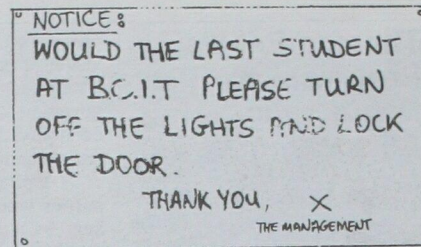 NOTICE:
WOULD THE LAST STUDENT
AT B.C.I.T PLEASE TURN
OFF THE LIGHTS AND LOCK
THE DOOR.
THANK YOU, X
THE MANAGEMENT